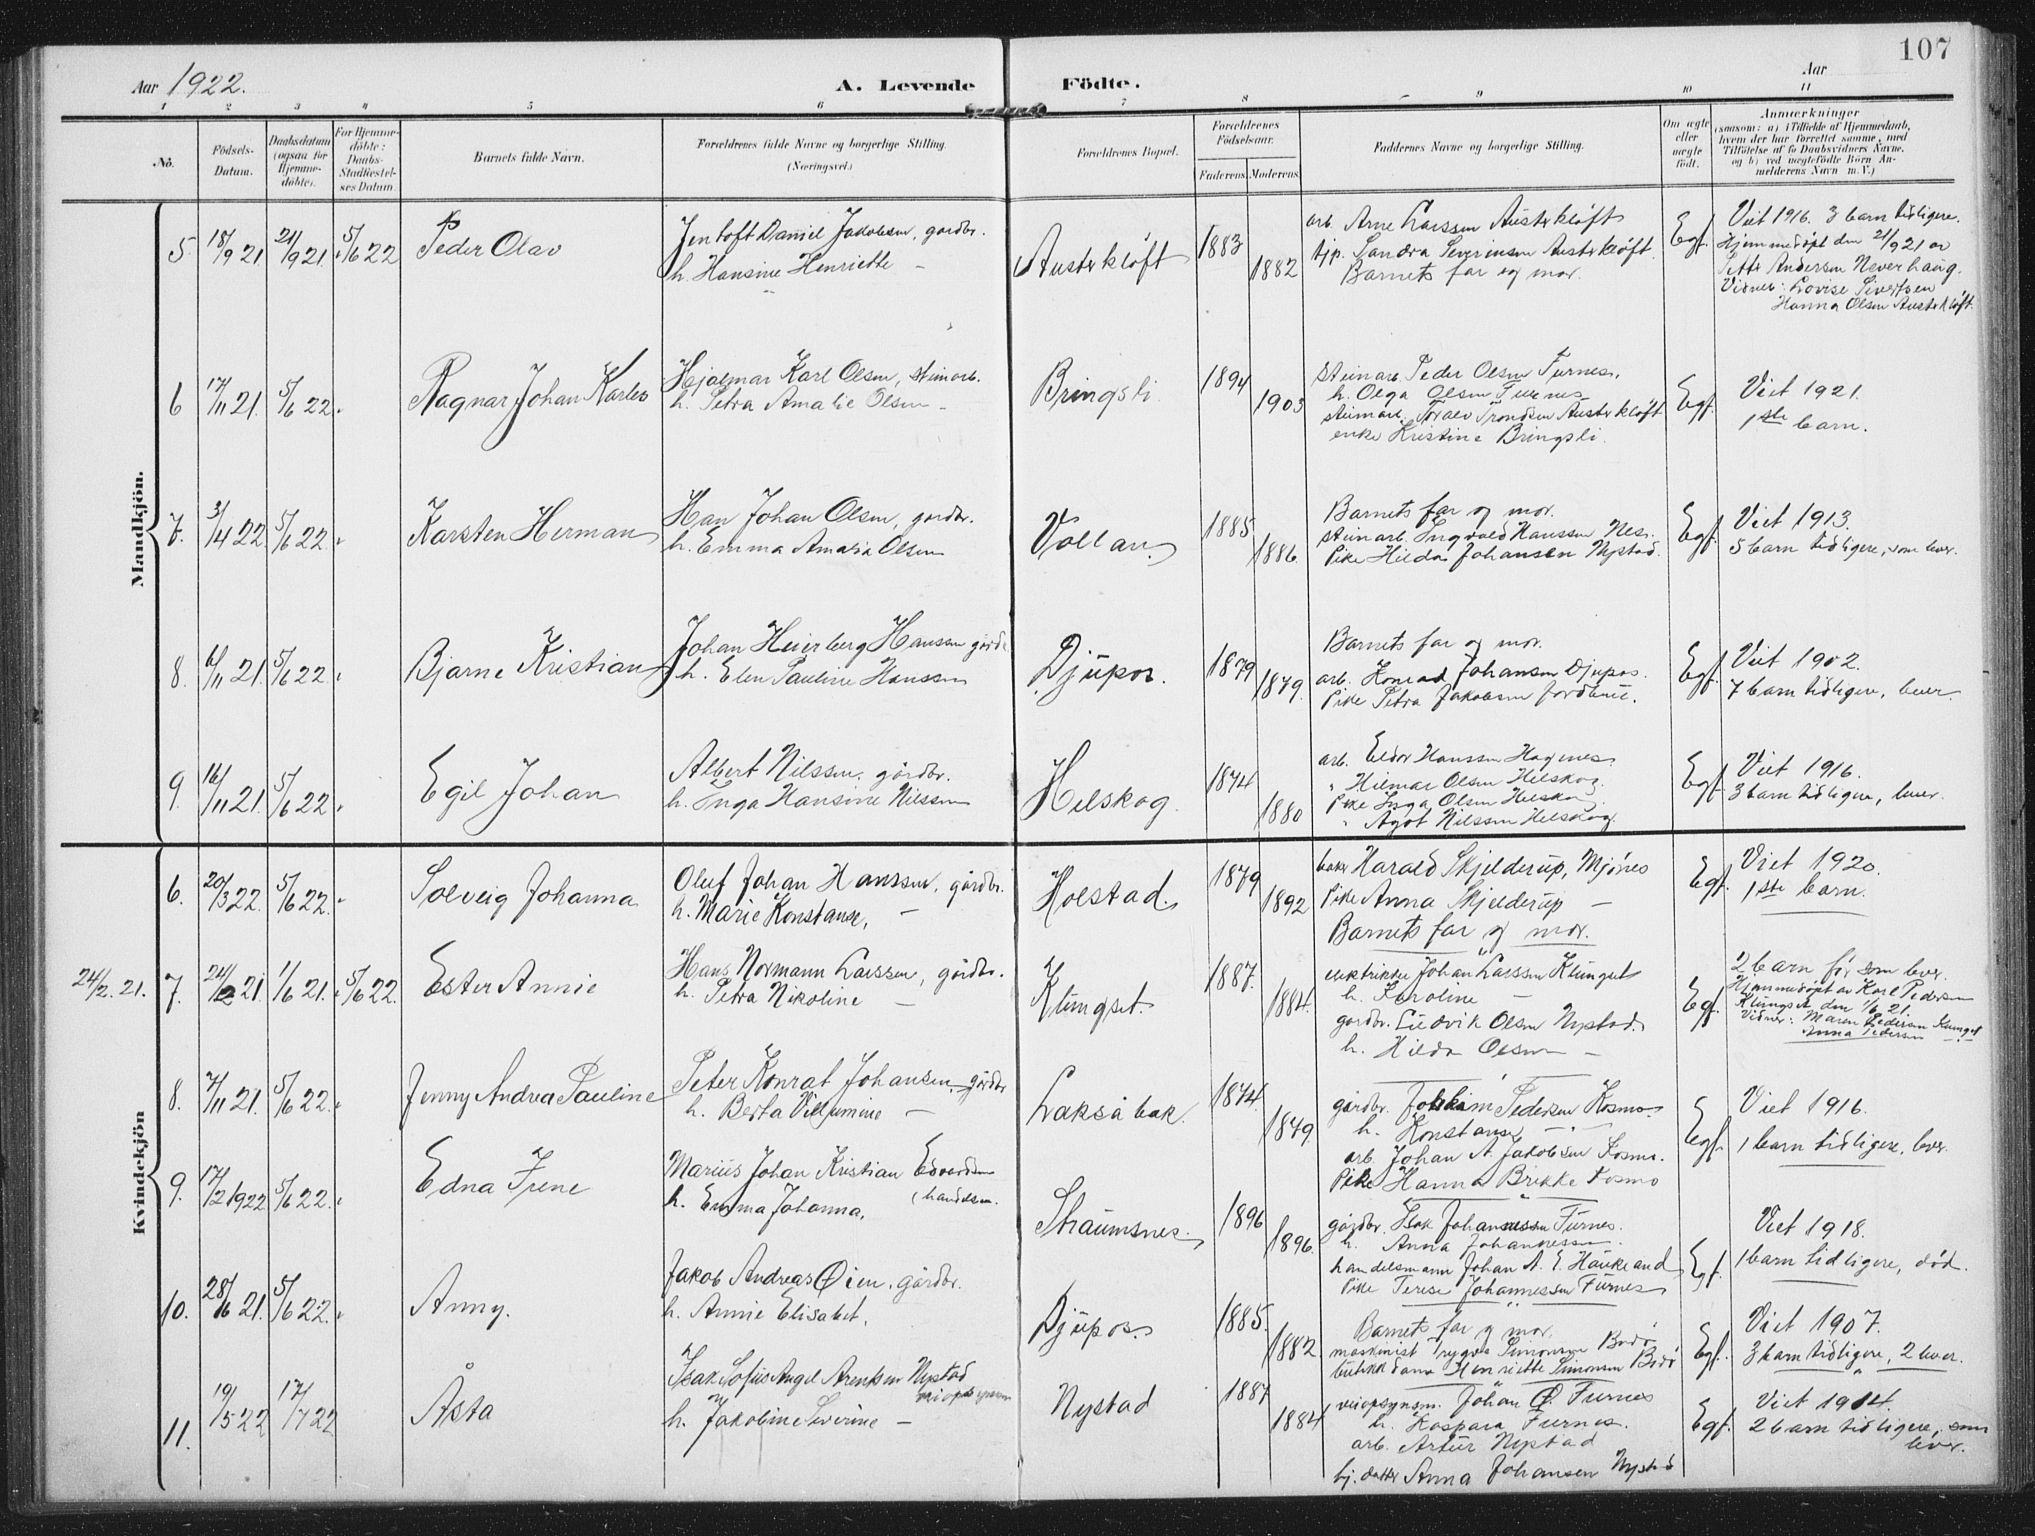 107
Aar 1922. A. Levende Födte. Aar
1 2 3 4 5 6 7 8 9 10 11
No. Födsels-Datum. Daabsdatum (ogsaa for Hjemmedöbte). For Hjemmedöbte: Daabs-Stadfæstelses Datum. Barnets fulde Navn. Forældrenes fulde Navne og borgerlige Stilling. (Næringsvei.) Forældrenes Bopæl. Forældrenes Födselsaar. Faderens. Moderens. Faddernes Navne og borgerlige Stilling. Om ægte eller uægte födt. Anmærkninger (saasom: a) i Tilfælde af Hjemmedaab, hvem der har forrettet samme, med Tilföielse af to Daabsvidners Navne, og b) ved uægtefödte Börn Anmelderens Navn m. V.)
Mandkjön.
5 18/9 21 21/9 21 5/6 22 Peder Olav
Jentoft Daniel Jakobsen, gardbr.
h. Hansine Henriette —
Austerkløft 1883 1882
arb. Arne Larssen Austerkløft
tjp. Sandra Severinsen Austerkløft.
Barnets far og mor.
Egf. Viet 1916. 3 barn tidligere.
Hjemmedöpt den 21/9 21 av
Petter Andersen Neverhaug.
Vidner: Lovise Sivertsen
Hanna Olsen Austerkløft.
6 17/11 21. 5/6 22. Ragnar Johan Karlos
Hjalmar Karl Olsen, steinarb.
h. Petra Amalie Olsen —
Bringsli. 1894 1903
steinarb. Peder Olsen Furnes.
h. Olga Olsen Furnes
steinarb. Toralv Trondsen Austerkløft
enke Kristine Bringsli.
Egf. Viet 1921.
1ste barn.
7. 3/4 22 5/6 22. Karsten Herman
Han Johan Olsen, gardbr.
h. Emma Amalia Olsen
Vollan. 1885 1886.
Barnets far og mor.
steinarb. Ingvald Hanssen Nes.
Pike Hilda Johansen Nystad.
Egf. Viet 1913.
5 barn tidligere, som lever.
8. 6/11 21. 5/6 22. Bjarne Kristian
Johan Heierberg Hanssen gardbr
h. Elen Pauline Hanssen
Djupos. 1879 1879.
Barnets far og mor.
arb. Konrad Johansen Djupos.
Pike Petra Jakobsen
Egf. Viet 1902.
7 barn tidligere, lever.
9. 16/11 21. 5/6 22. Egil Johan
Albert Nilssen, gårdbr.
h. Inga Hansine Nilssen
Helskog. 1874 1880
arb. Eldor Hanssen Hagenes.
" Hilmar Olsen Helskog.
Pike Inga Olsen Helskog.
" Agot Nilssen Helskog.
Egf. Viet 1916.
3 barn tidligere, lever.
Kvindekjön
6. 20/3 22. 5/6 22. Solveig Johanna
Oluf Johan Hanssen, gårdbr.
h. Marie Konstanse, —
Holstad. 1879 1892
Harald Skjelderup, Mjönes
Pike Anna Skjelderup —
Barnets far og mor.
Egf. Viet 1920.
1ste barn.
24/2. 21. 7. 24/2 21. 1/6 21. 5/6 22. Ester Annie
Hans Normann Larssen, gårdbr.
h. Petra Nikoline —
Klungset. 1887. 1884.
elektriker Johan Larssen Klungset
h. Karoline —
gardbr. Ludvik Olsen Nystad.
h. Hilda Olsen —
Egf. 2 barn før som lever.
Hjemmedöpt av Karl Pedersen
Klungset den 1/6 21.
Vidner: Maren Pedersen Klungset
Anna Pedersen —
8. 7/11 21. 5/6 22. Jenny Andrea Pauline
Peter Konrat Johansen, gårdbr
h. Berta Villumine —
Laksåbak. 1874. 1879
gårdbr. Joakim Pedersen Kosmo
h. Konstanse —
arb. Johan A. Jakobsen Kosmo.
Pike Hanna Brikke Kosmo
Egf. Viet 1916.
1 barn tidligere, lever.
9. 17/2 1922 5/6 22. Edna Irene
Marius Johan Kristian Edvardsen
h. Emma Johanna, (handelsm.
Straumsnes. 1896 1896.
gårdbr. Isak Johannessen Furnes.
h. Anna Johannessen
handelsmann Johan A. E. Haukland
Pike Terese Johannessen Furnes
Egf. Viet 1918.
1 barn tidligere, död.
10. 28/6 21. 5/6 22. Anny.
Jakob Andreas Øien, gårdbr.
h. Annie Elisabet,
Djupos. 1885. 1882
Barnets far og mor.
maskinist Trygve Simonsen Bodö
butikkdame Henriette Simonsen Bodö
Egf. Viet 1907.
3 barn tidligere, 2 lever.
11. 19/5 22 17/7 22 Åsta
Isak Sofus Angel Arentsen Nystad
veiopsynsm
h. Jakobine Severine —
Nystad 1887 1884
veiopsynsm. Johan O. Furnes
h. Kaspara Furnes.
arb. Artur Nystad
hj. datter Anna Johansen Nystad
Egf. Viet 1914.
2 barn tidligere, som
lever.